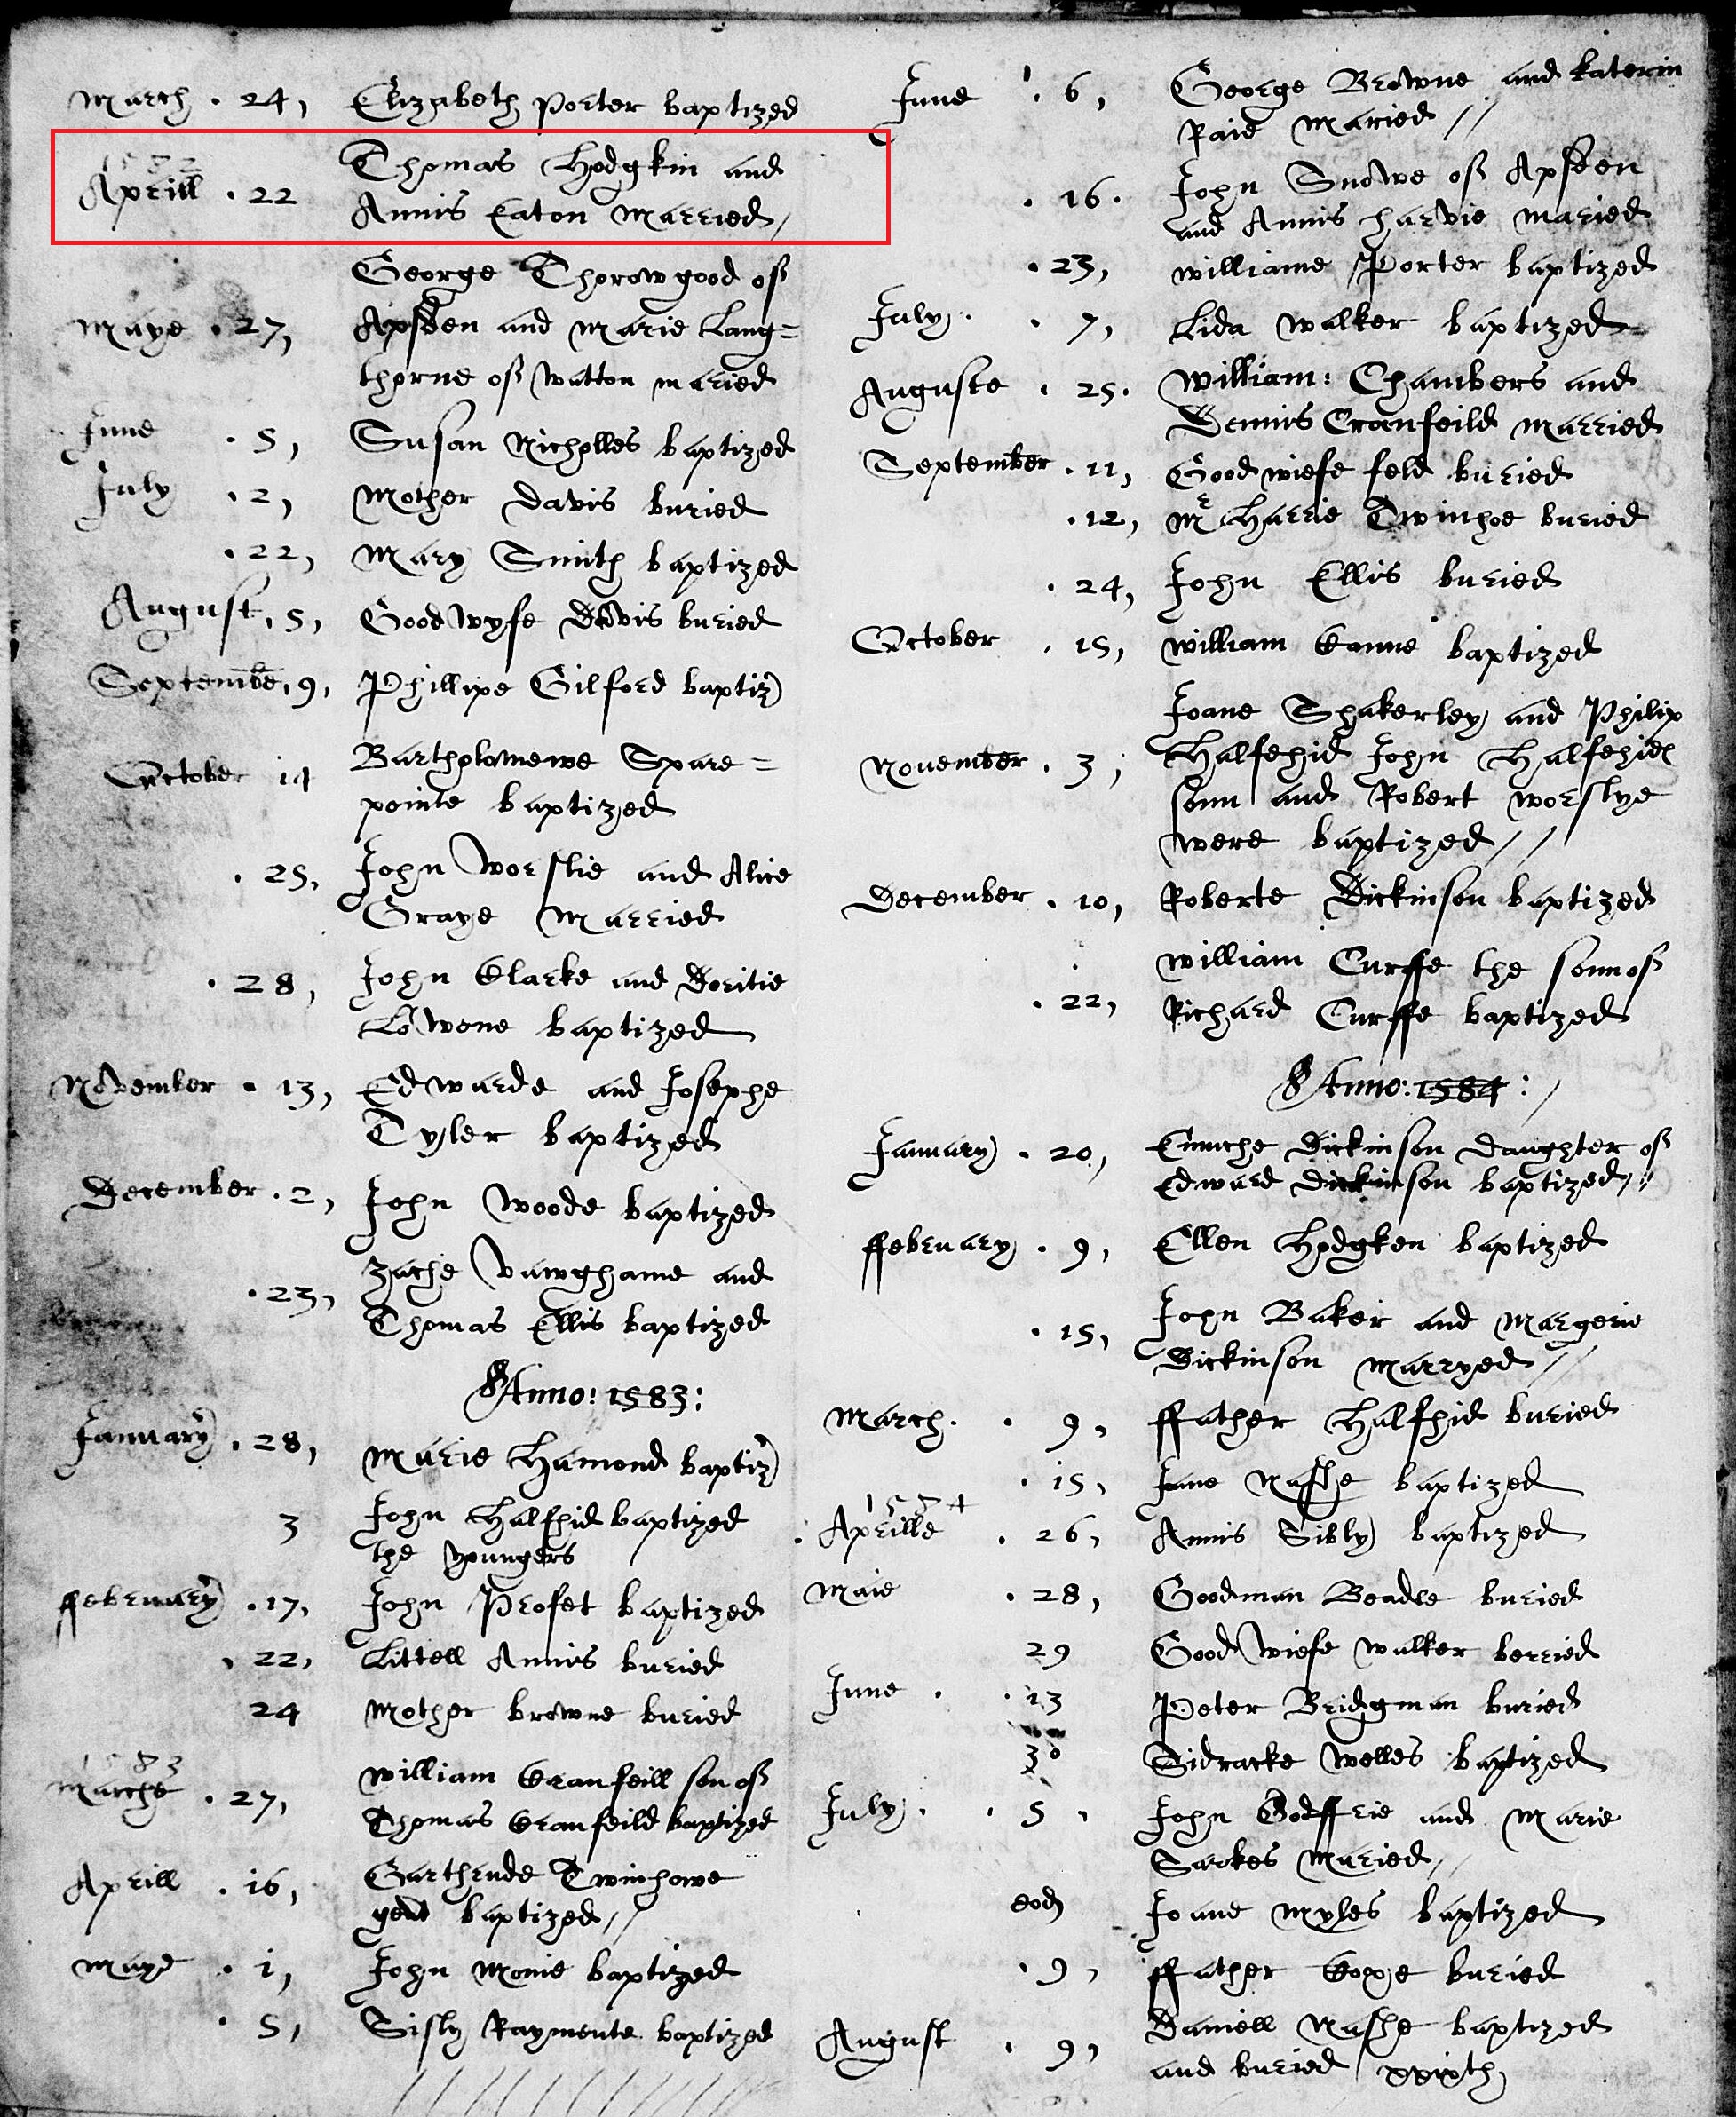 March . 24, Elizabeth Porter baptized
1582
Aprill . 22 Thomas Hodgkin and
Annis Eaton Married,
George Thorowgood of
Maye . 27, Apsden and Marie Lang=
thorne of Watton maried
June . 5, Susan Nicholles baptized
July . 2, Mother Davis buried
. 22, Mary Smith baptized
August . 5, Good Wyfe Davis buried
Septembe, 9, Phillipe Gilford baptiz
October 14 Bartholomewe Spare=
pointe baptized
. 25, John Worslie and Alice
Graye Married
. 28, John Clarke and Doritie
Lowene baptized
November . 13, Edwarde and Josephe
Tyler baptized
December . 2, John Woode baptized
. 23, Zache Vawghame and
Thomas Ellis baptized
Anno: 1583:
January . 28, Marie Hamond baptiz
3 John Halfhid baptized
the youngers
ffebruary . 17, John Profet baptized
, 22, Littell Annis buried
24 Mother browne buried
1583
Marche . 27, William Cranfeill son of
Thomas Cranfeild baptized
Aprill . 16, Garthrude Twinhowe
gent baptized,//
Maye . 1, John Monie baptized
. 5, Sisly Raymente baptized
June . 6, George Browne and Katerin
Raie Maried //
. 16. John Snowe of Apsden
and Annis Harvie maried
. 23, Williame Porter baptized
July . . 7, Lida Walker baptized
Auguste . 25. William: Chambers and
Dennis Cranfeild Married
September . 11, Good wiefe feld buried
. 12, Mr Harrie Twinhoe buried
. 24, John Ellis buried
October . 15, William Canne baptized
Joane Shakerley and Philip
November . 3, Halfehid John Halfehid
sonn and Robert Worslye
were baptized //
December . 10, Roberte Dickinson baptized
William Curffe the sonn of
. 22, Richard Curffe baptized
Anno: 1584:/
January . 20, Dickinson Daughter of
Edward Dickinson baptized,//
ffebruary . 9, Ellen Hodgken baptized
. 15, John Baker and Margerie
Dickinson Marryed //
March . . 9, ffather Halfhid buried
. 15, Jane Nashe baptized
1584
Aprille . 26, Annis Sibly baptized
Maie . 28, Goodman Beadle buried
29 Good Wiefe Walker berried
June . . 13 Peter Bridgman buried
30 Sidracke Welles baptized
July . . 5, John Godffrie and Marie
Sarkes Maried,//
eod Joane Myles baptized
. 9, ffather Coxe buried
August . 9, Daniell Nashe baptized
and buried xvixth,